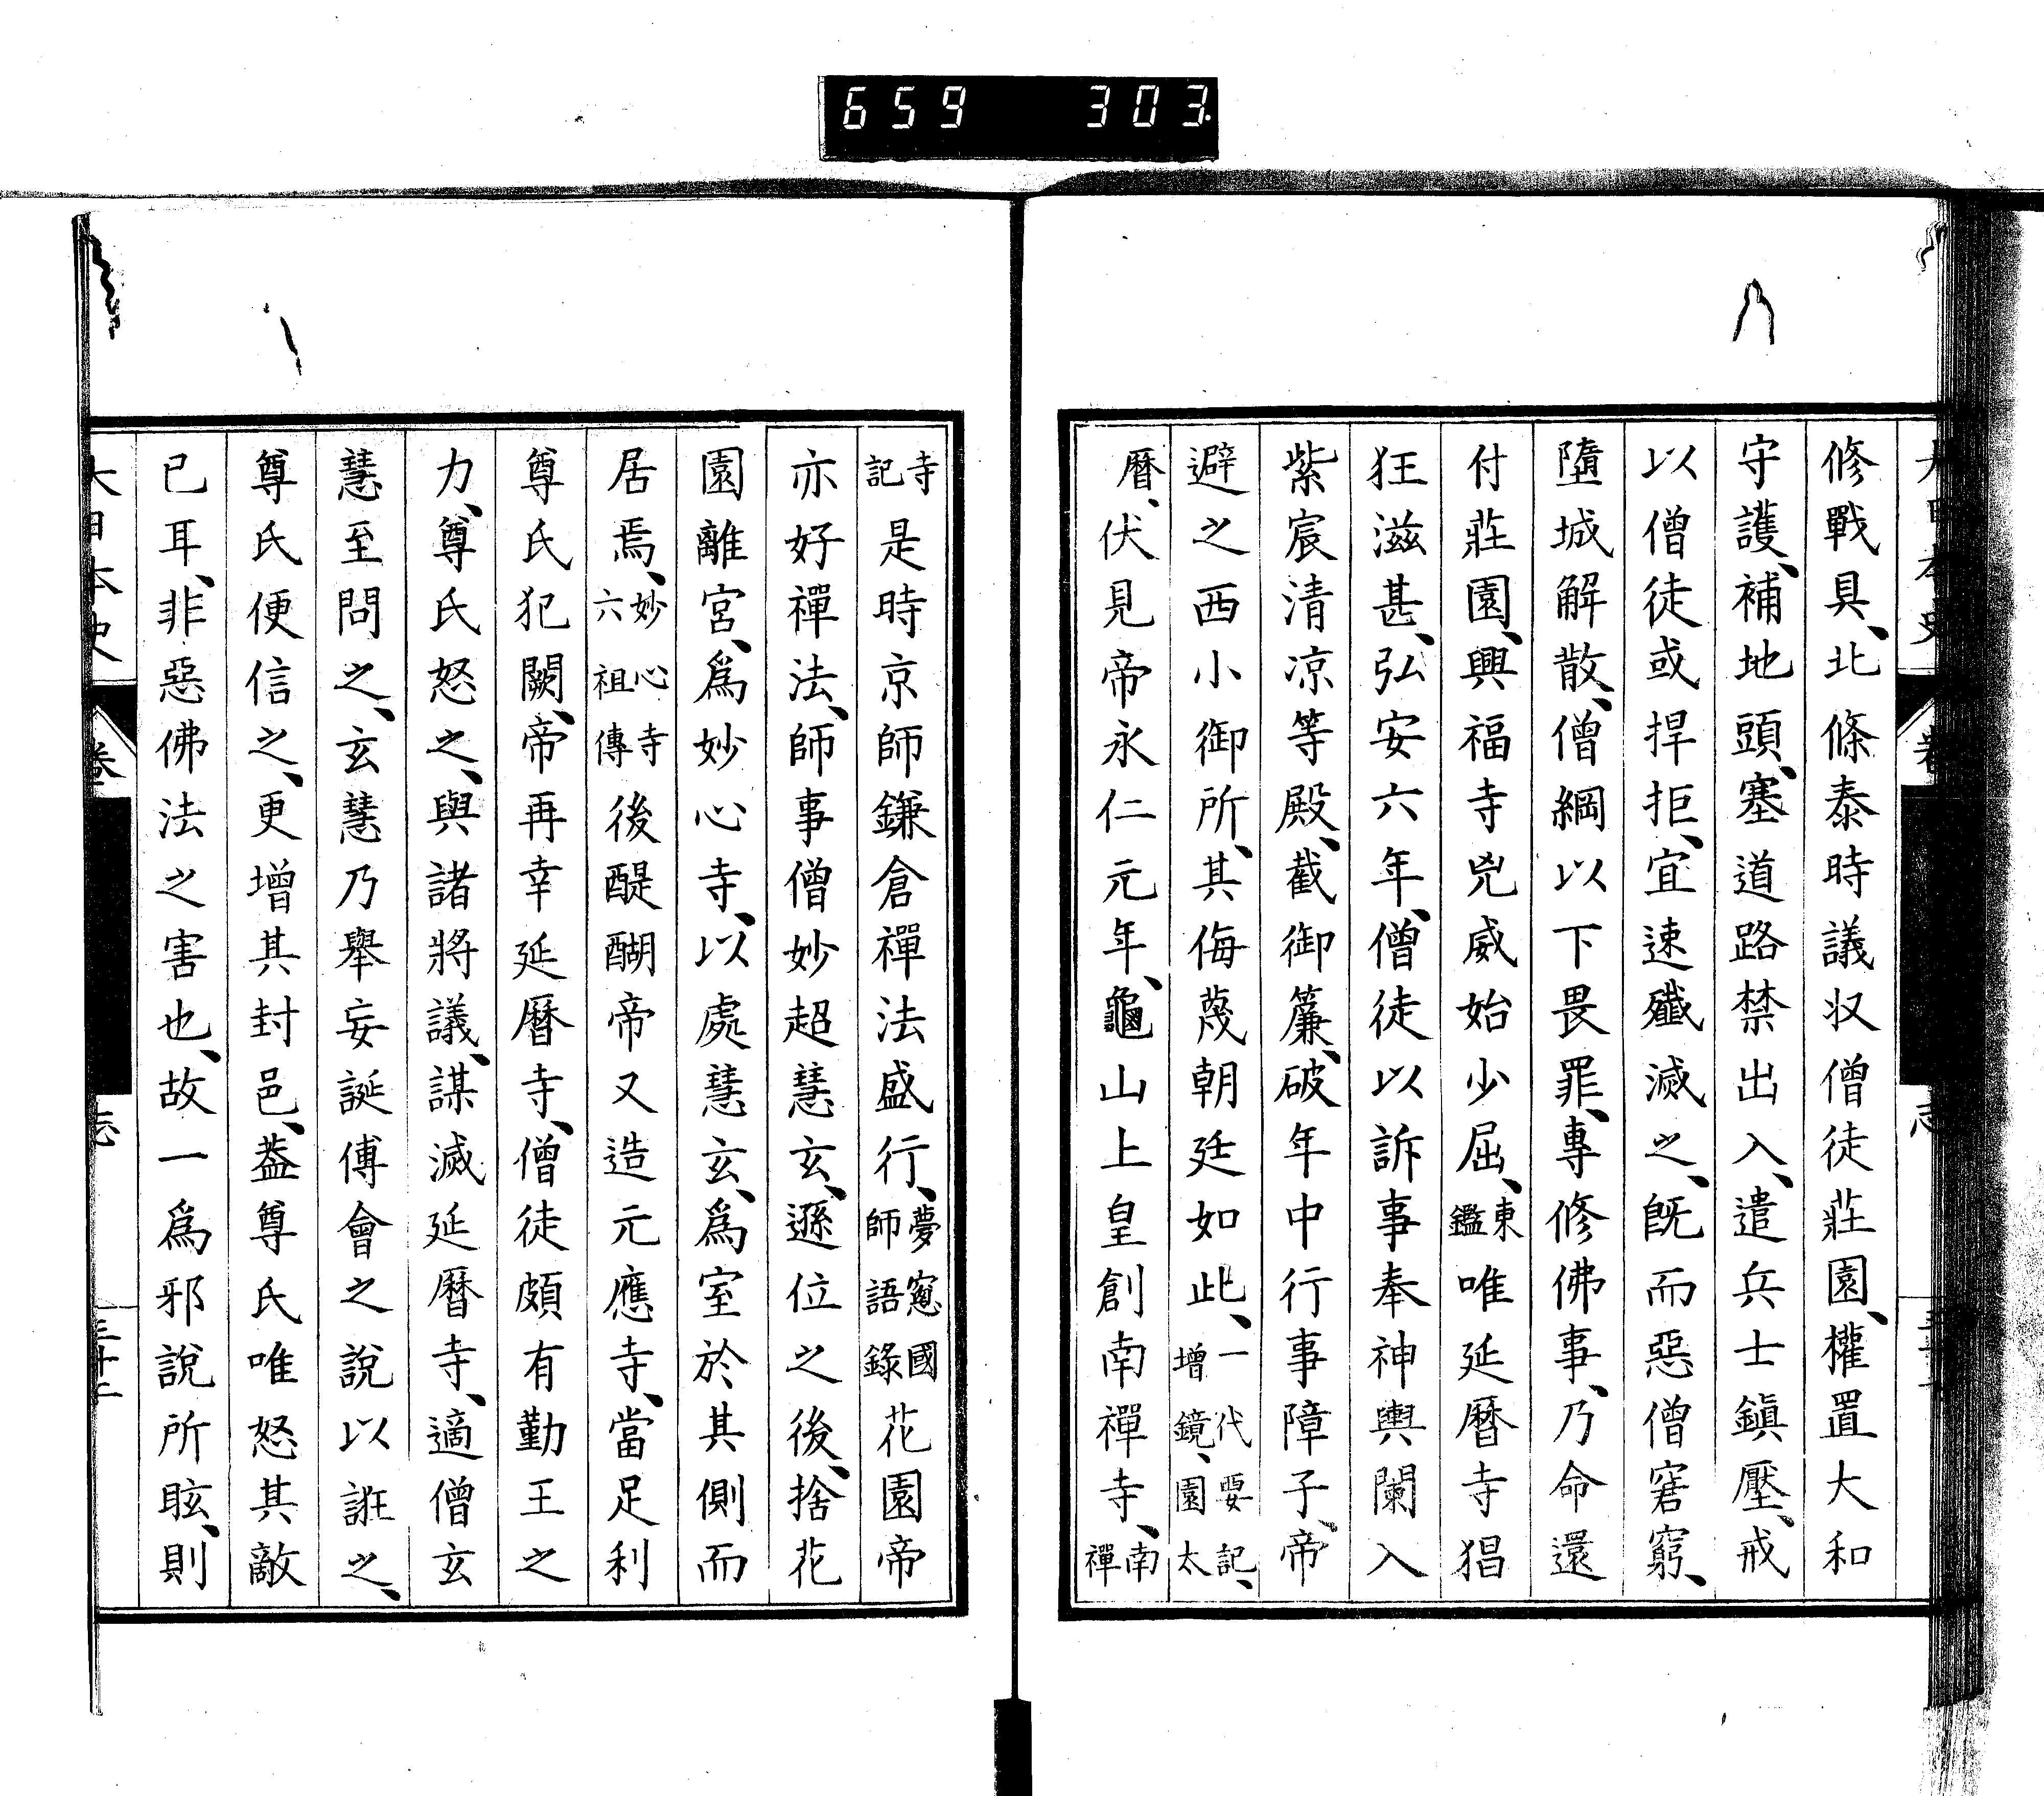 659 303
修戰具、北條泰時議収僧徒莊園、權置大和
守護、補地頭、塞道路禁出入、遣兵士鎭壓、戒
以僧徒或捍拒、宜速殲滅之、既而惡僧窘窮、
墮城解散、僧綱以下畏罪、專修佛事、乃命還
付莊園、興福寺兇威始少屈、東鑑唯延暦寺猖
狂滋甚、弘安六年、僧徒以訴事奉神輿闌入
紫宸清凉等殿、截御簾、破年中行事障子、帝
避之西小御所、其侮蔑朝廷如此、一代要記、增鏡、園太
暦、伏見帝永仁元年、龜山上皇創南禪寺、南禪
寺記是時京師鎌倉禪法盛行、夢窓國師語錄花園帝
亦好禪法、師事僧妙超慧玄、遜位之後、捨花
園離宮、爲妙心寺、以處慧玄、爲室於其側而
居焉、妙心寺六祖傳後醍醐帝又造元應寺、當足利
尊氏犯闕、帝再幸延暦寺、僧徒頗有勤王之
力、尊氏怒之、與諸將議、謀滅延暦寺、適僧玄
慧至問之、玄慧乃舉妄誕傅會之說以誑之、
尊氏便信之、更增其封邑、蓋尊氏唯怒其敵
已耳、非惡佛法之害也、故一爲邪說所眩、則
大日本史
卷
志
三十二